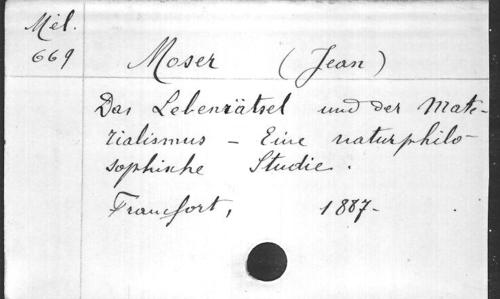 Mél.
669
Moser (Jean)
Das Lebenrätsel und der Mate-
rialismus - Eine naturphilo-
sophische Studie.
Francfort, 1887-